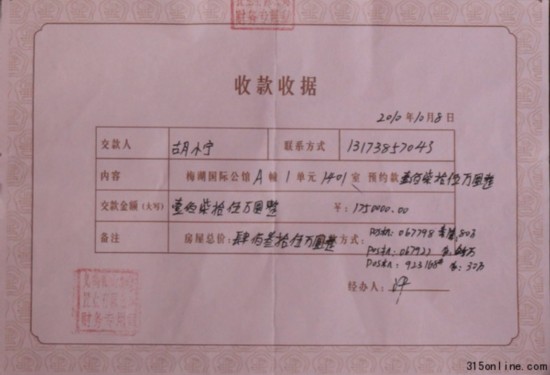 收款收据
2010年10月8日
交款人 胡小宁 联系方式 13173857045
内容 梅湖国际公馆 A 幢 1 单元 1401 室 预约款 壹佰柒拾伍万圆整
交款金额(大写) 壹佰柒拾伍万圆整 ¥: 1750000.00
备注 房屋总价: 肆佰叁拾伍万圆整 方式: POS机: 067798
POS机: 067922
POS机: 923168# 32万
经办人:
财务专用章
315online.com